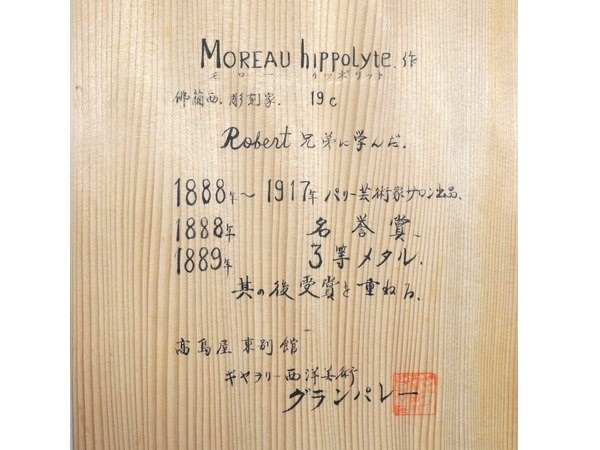 MOREAU hippolyte. 作
モロー イッポリット
佛蘭西. 彫刻家. 19c
Robert 兄弟に学んだ.
1888年～1917年 パリー芸術家サロン出品、
1888年 名誉賞、
1889年 3等メタル.
其の後受賞を重ねる.
高島屋東別館
ギャラリー西洋美術
グランパレー